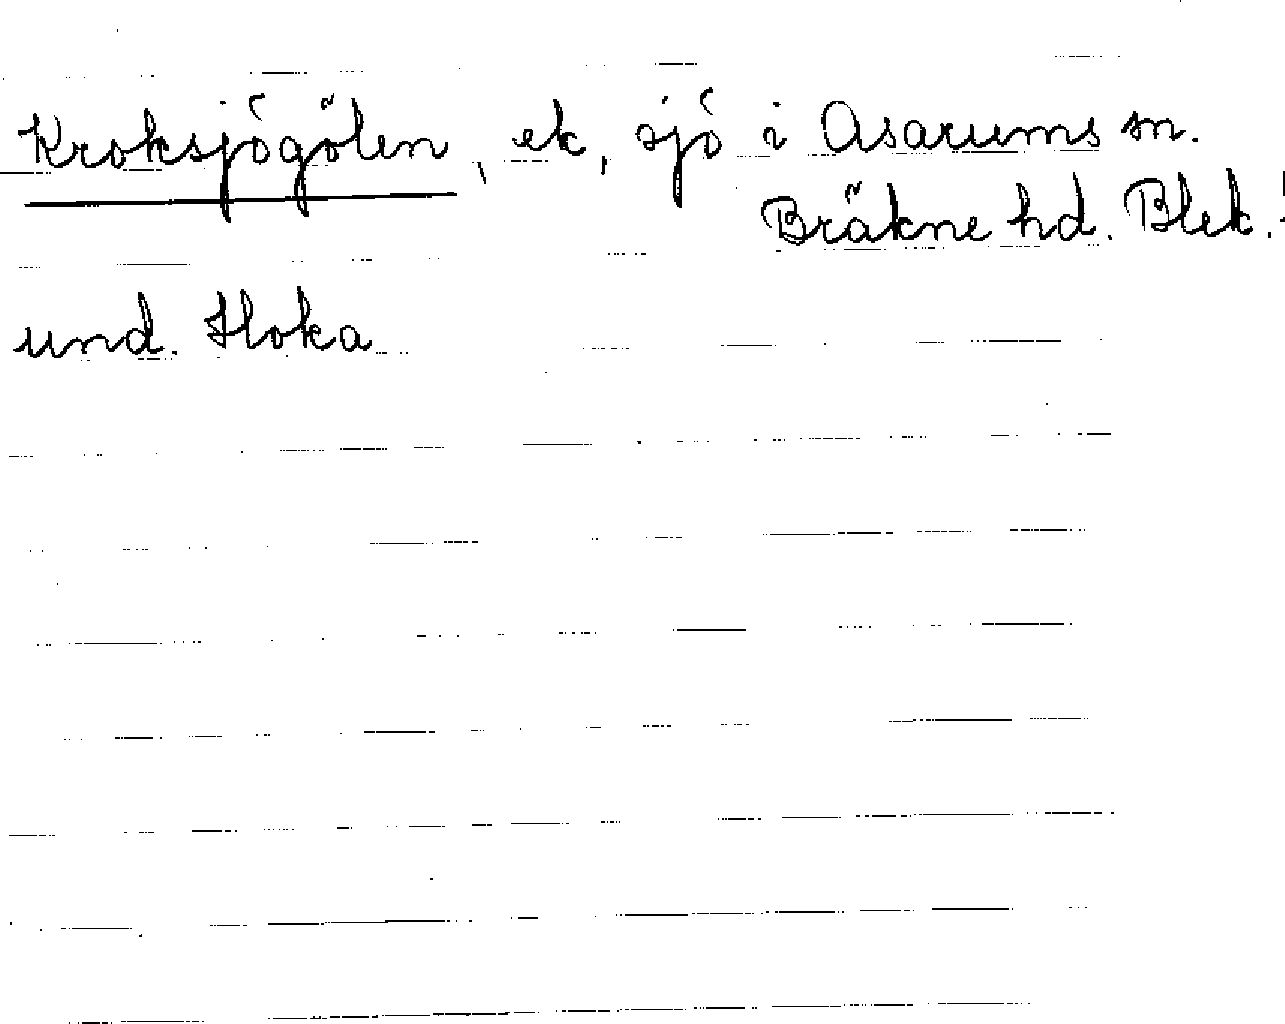 Kroksjögölen, ek, sjö i Asarums sn.
Bräkne hd. Blek.
und. Hoka